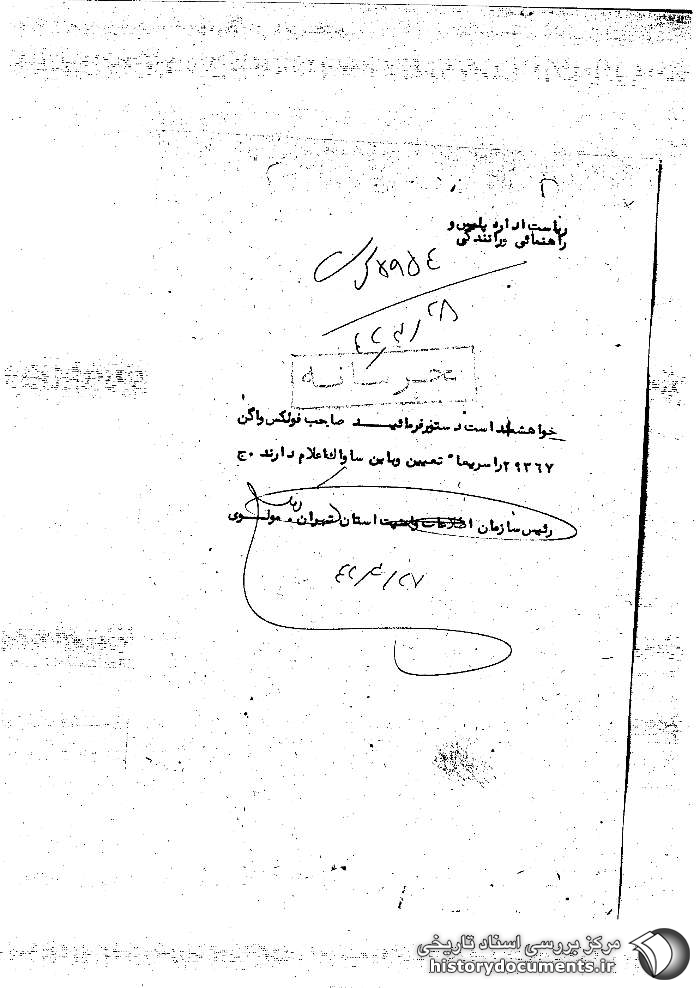 ریاست اداره پلیس و
راهنمائی ورانندگی
۷۹۵٤
۲۸
محرمانه
خواهشمند است دستور فرمائید صاحب فولکس واگن
۲۹۳٦۷ را سریعا" تعیین وباین ساواک اعلام دارند ج
رئیس سازمان اطلاعات وامنیت استان تهران. مولوی
٤۲/۳/۲۷
مرکز بررسی اسناد تاریخی
historydocuments.ir